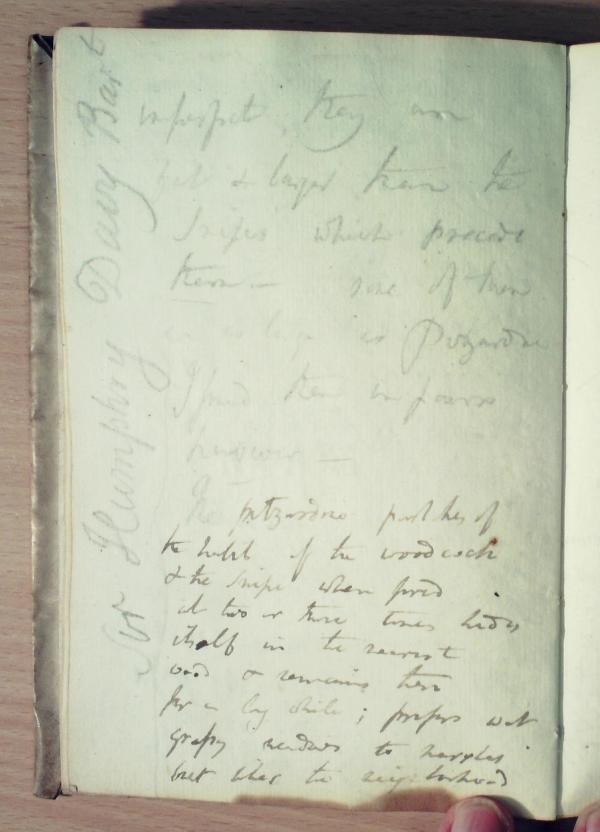 Sir Humphry Davy Bart
imperfect, they are
fat & larger than the
Snipes which precede
them — some of them
as large as Potzardne
I found them in pairs
however —
The potzardne partakes of
the habit of the woodcock
& the snipe when fired
at two or three times hides
itself in the nearest
wood & remains there
for a long while; prefers wet
grassy meadows to marshes
but likes the neighborhood